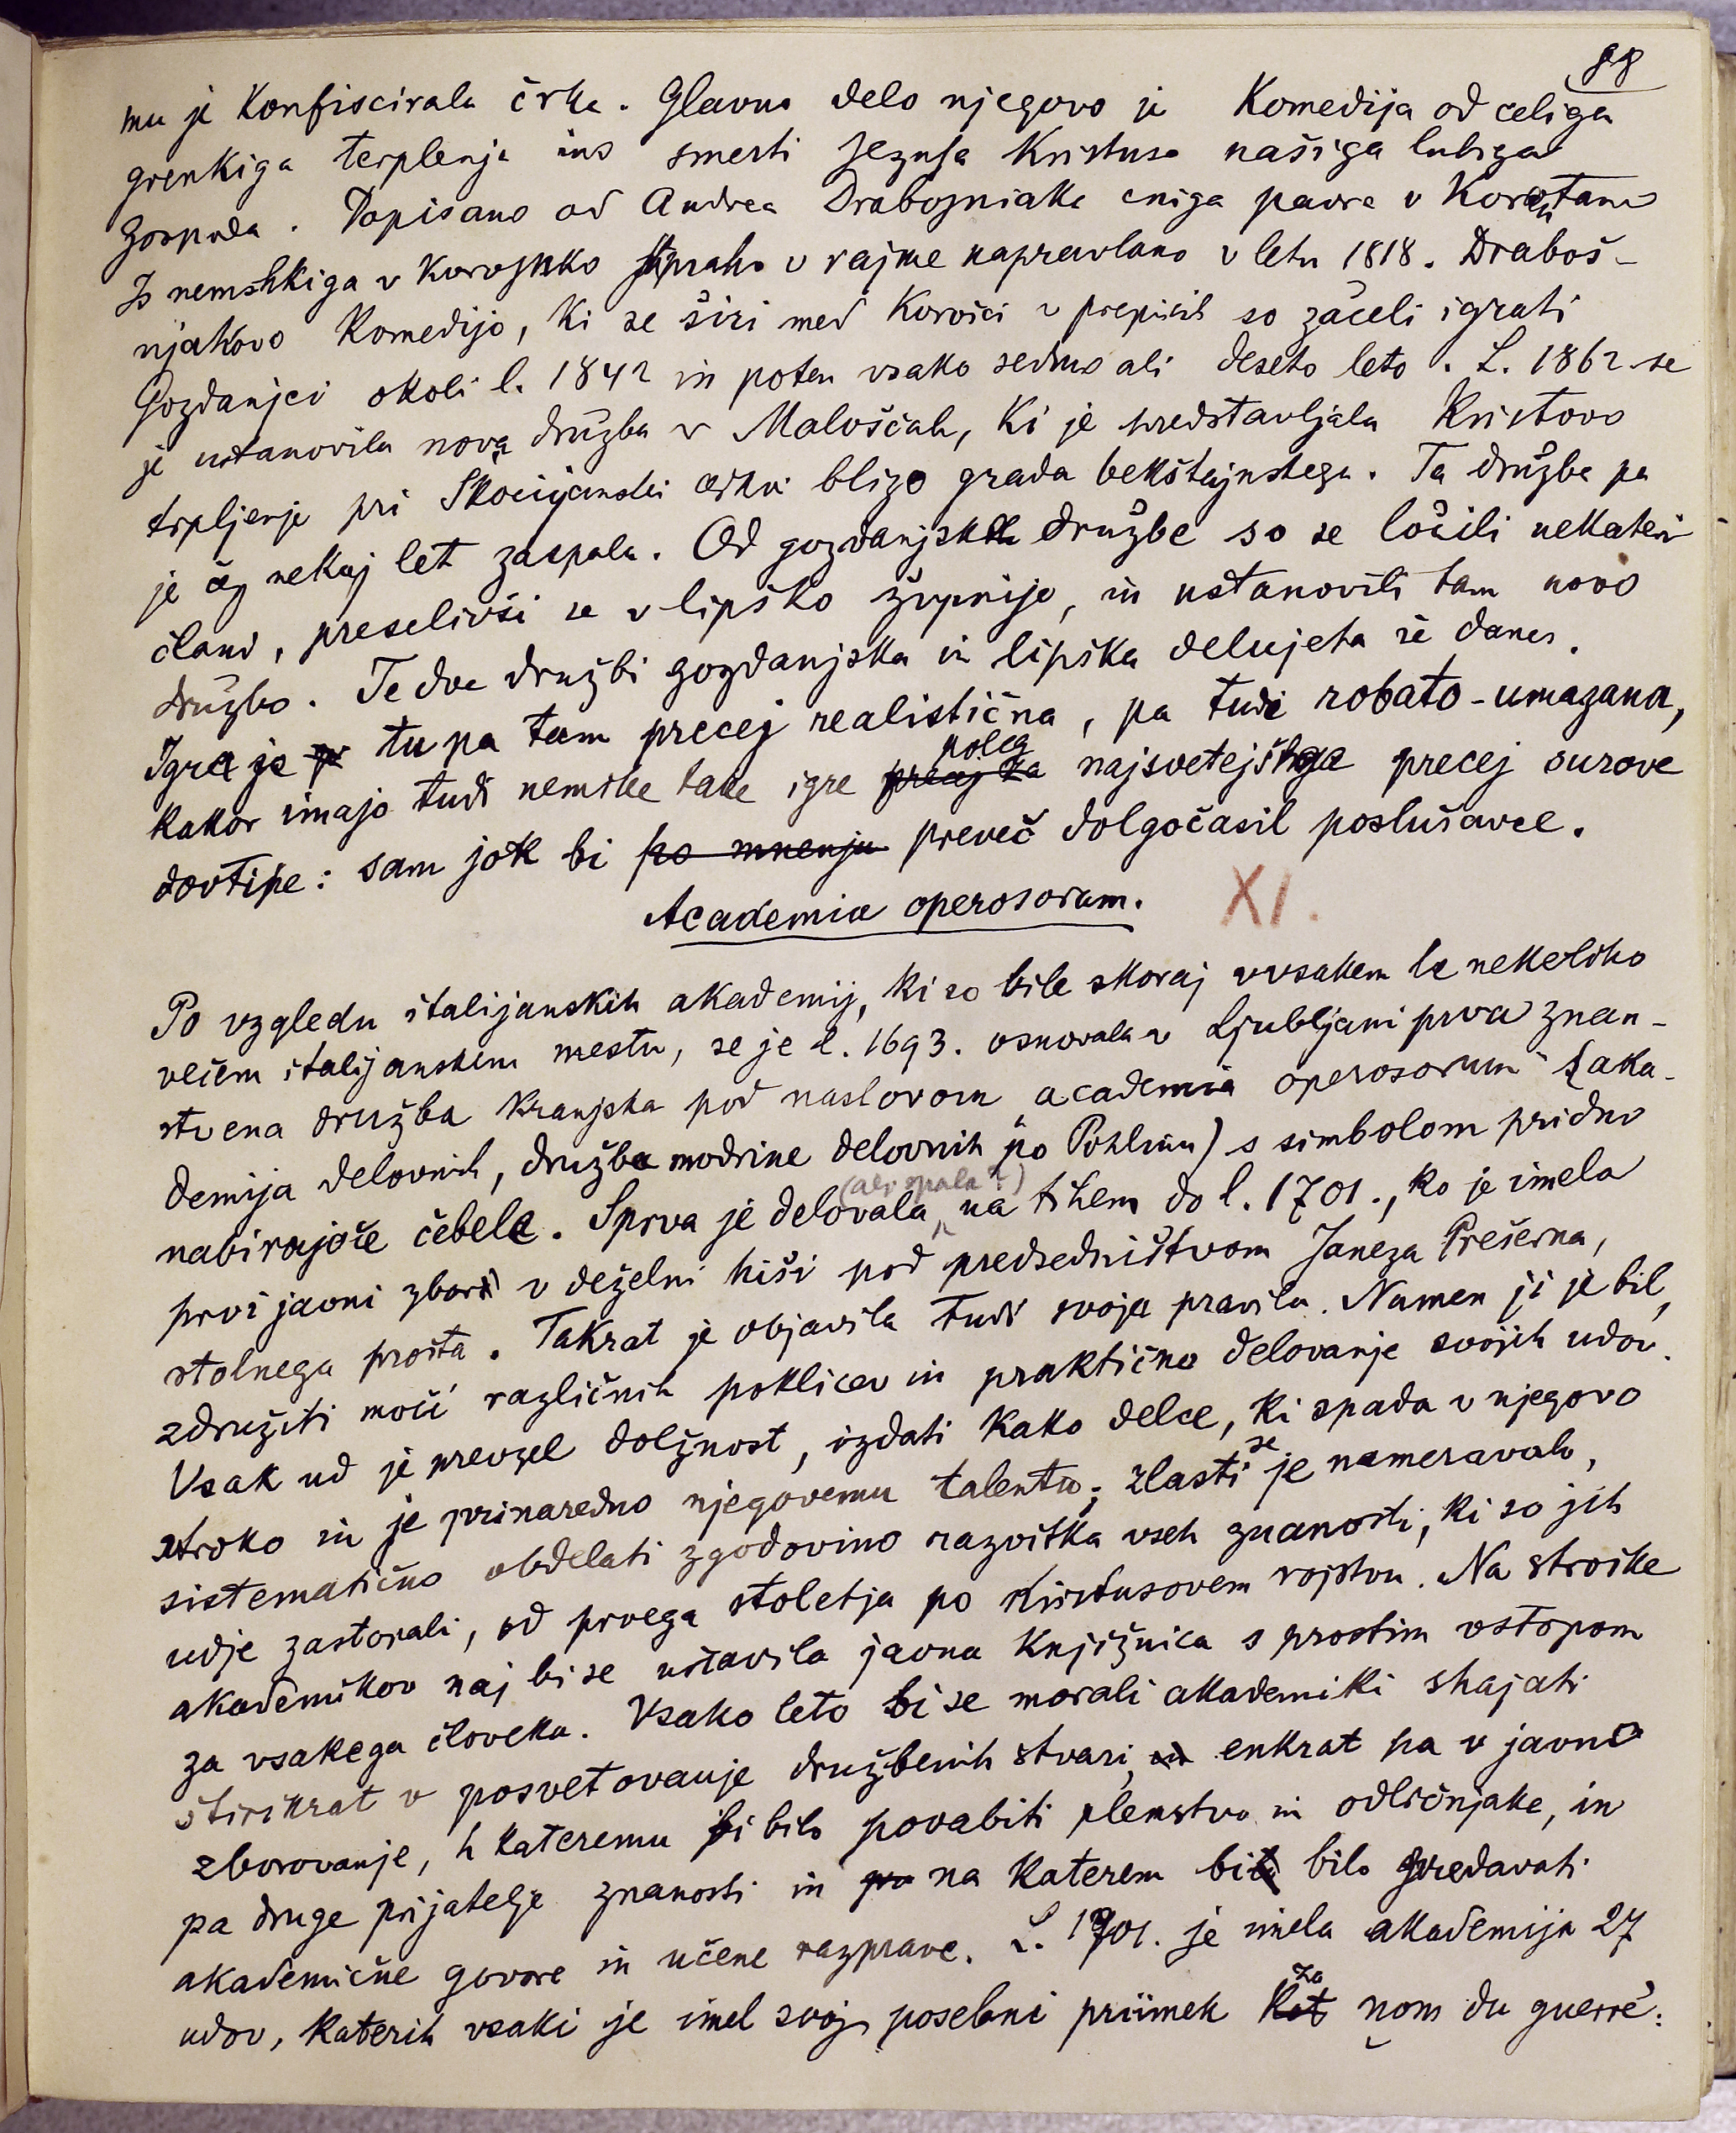 88
mu je konfiscirala črke. Glavno delo njegovo je Komedija od celiga
grenkiga terplenja ino smerti Jezusa Kristusa našiga lubiga
Gospuda. Popisano od Andrea Drabosniaka eniga paura v Korotano
Is nemshkiga v Korosko shpraho v rajme napravlano v letu 1818. Draboš-
njakovo Komedijo, ki se širi med Korošci v prepisih so začeli igrati
Gozdanjci okoli l. 1842 in potem vsako sedmo ali deseto leto. L. 1862 se
je ustanovila nova družba v Malošcah, ki je predstavljala Kristovo
trpljenje pri Škocijanski cerkvi blizo grada bekštajnskega. Ta družba pa
je čez nekaj let zaspala. Od gozdanjske družbe so se ločili nekateri
člani, preselivši se v lipško župnijo, in ustanovili tam novo
družbo. Te dve družbi gozdanjska in lipška delujeta še danes.
Igra je tu pa tam precej realistična, pa tudi robato-umazana,
kakor imajo tudi nemške take igre precej za poleg najsvetejšega precej surove
dovtipe: sam jok bi po mnenju preveč dolgočasil poslušavce.
Academia operosorum. XI.
Po vzgledu italijanskih akademij, ki so bile skoraj v vsakem le nekoliko
večem italijanskem mestu, se je l. 1693. osnovala v Ljubljani prva znan-
stvena družba kranjska pod naslovom „academia operosorum“ (aka-
demija delovnih, družba modrine delovnih po Pohlinu) s simbolom pridno
nabirajoče čebele. Sprva je delovala (ali spala?) na tihem do l. 1701., ko je imela
prvi javni zbor v deželni hiši pod predsedništvom Janeza Prešerna,
stolnega prošta. Takrat je objavila tudi svoja pravila. Namen ji je bil,
združiti moči različnih poklicev in praktično delovanje svojih udov.
Vsak ud je prevzel dolžnost, izdati kako delce, ki spada v njegovo
stroko in je prinaredno njegovemu talentu; zlasti se je nameravalo,
sistematično obdelati zgodovino razvitka vseh znanosti, ki so jih
udje zastopali, od prvega stoletja po Kristusovem rojstvu. Na stroške
akademikov naj bi se ustavila javna knjižnica s prostim vstopom
za vsakega človeka. Vsako leto bi se morali akademiki shajati
štirikrat v posvetovanje družbenih stvari, in enkrat pa v javno
zborovanje, h kateremu bi bilo povabiti plemstvo in odličnjake, in
pa druge prijatelje znanosti in na katerem bi bilo predavati
akademične govore in učene razprave. L. 1701. je imela akademija 27
udov, katerih vsaki je imel svoj posebni priimek kot za nom du guerre: